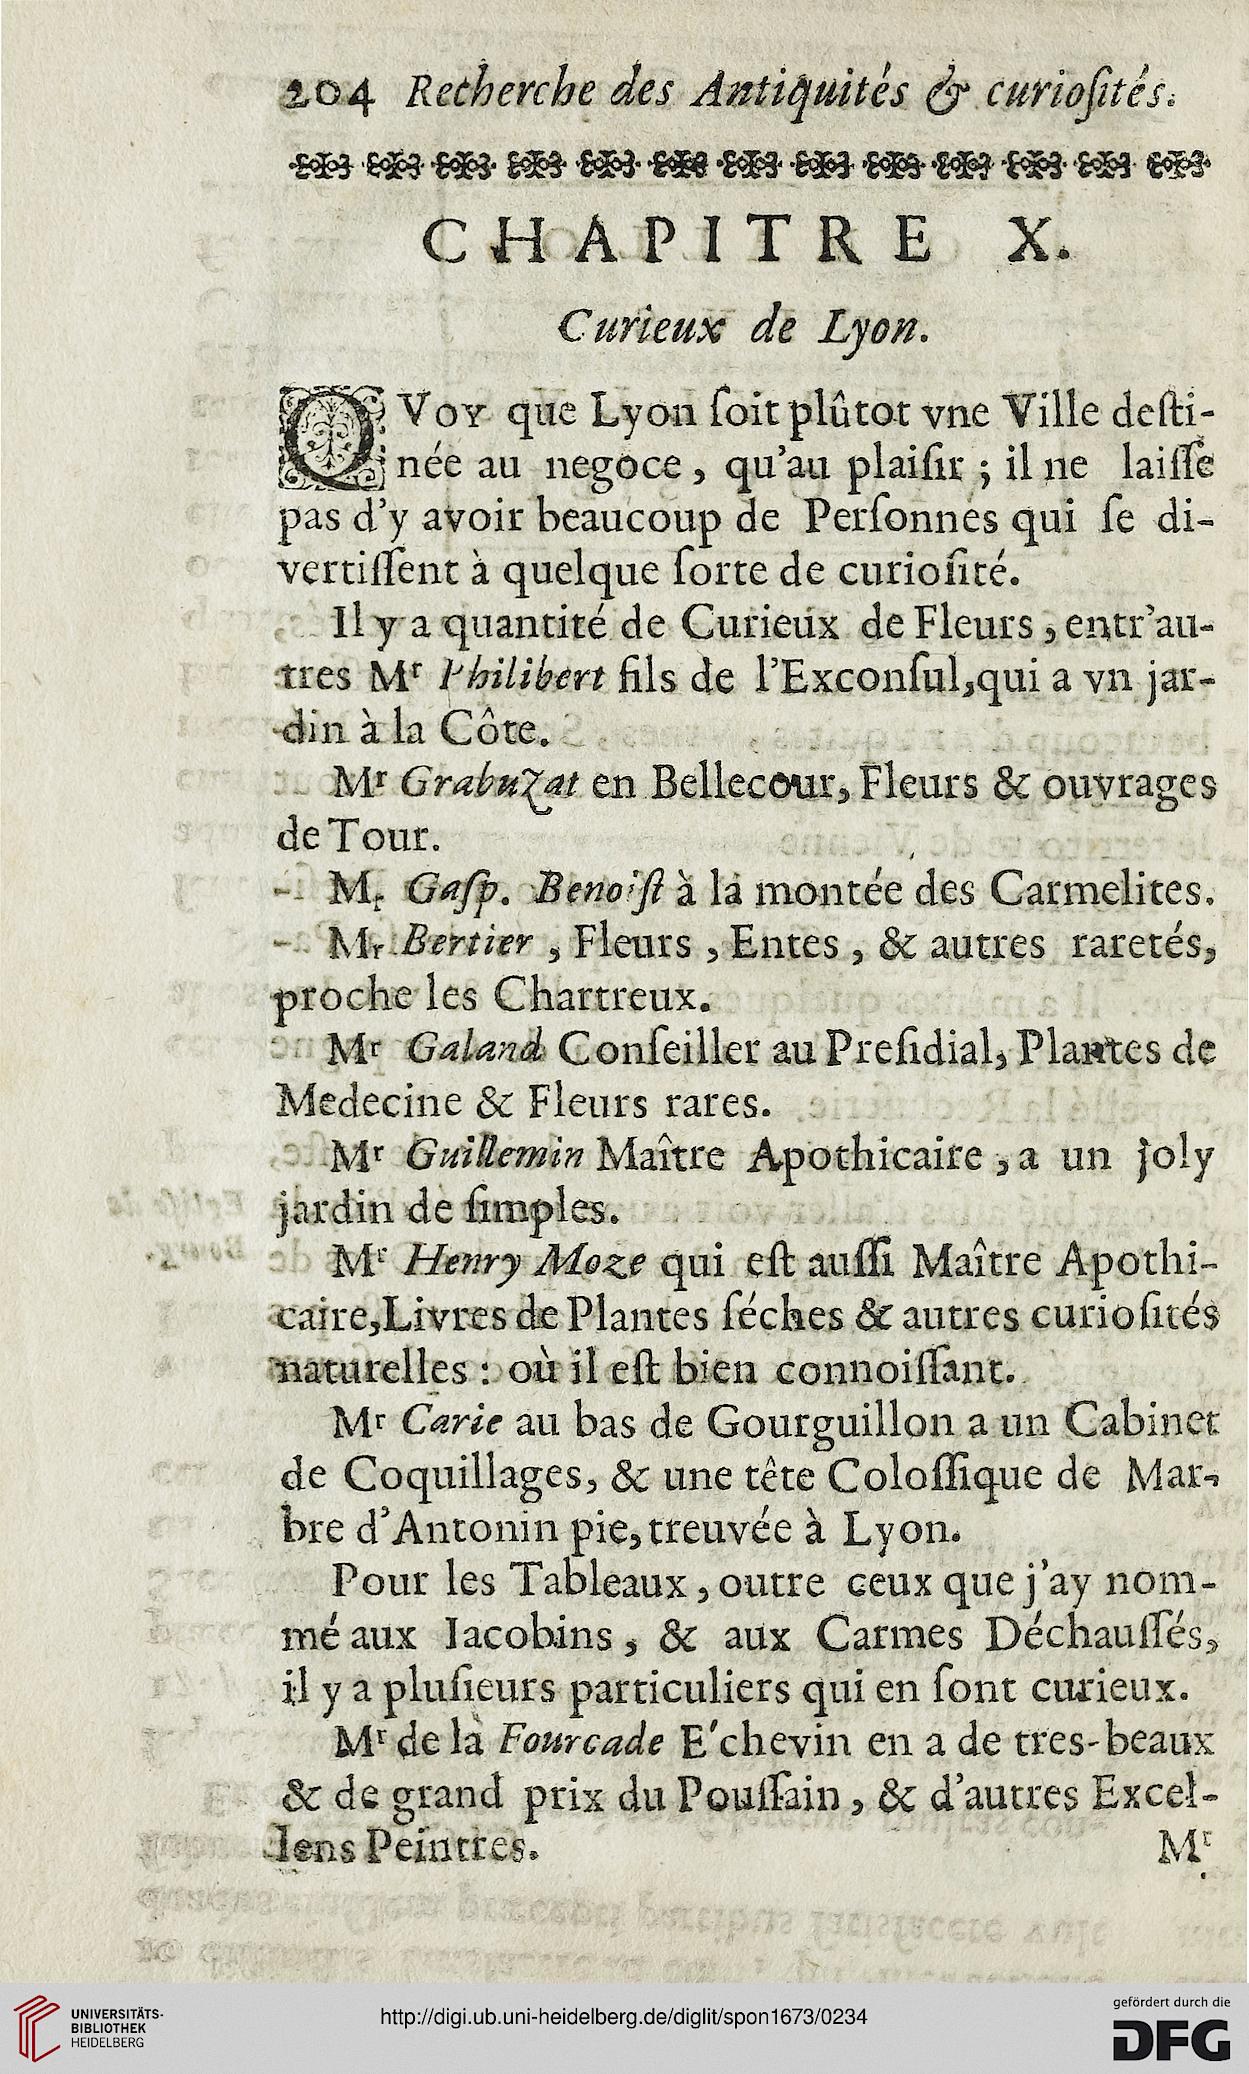 204 Recherche des Antiquités & curioſités.
CHAPITRE X.
Curieux de Lyon.
QVoy que Lyon ſoit plûtot vne Ville deſti-
née au negoce, qu'au plaiſir; il ne laiſſe
pas d'y avoir beaucoup de Perſonnes qui ſe di-
vertiſſent à quelque ſorte de curioſité.
Il y a quantité de Curieux de Fleurs, entr'au-
tres Mr Philibert fils de l'Exconſul, qui a vn jar-
din à la Côte.
Mr Grabuzat en Bellecour, Fleurs & ouvrages
de Tour.
Mr Gaſp. Benoiſt à la montée des Carmelites.
Mr Bertier, Fleurs, Entes, & autres raretés,
proche les Chartreux.
Mr Galand Conſeiller au Preſidial, Plantes de
Medecine & Fleurs rares.
Mr Guillemin Maître Apothicaire, a un joly
jardin de ſimples.
Mr Henry Moze qui eſt auſſi Maître Apothi-
caire, Livres de Plantes ſéches & autres curioſités
naturelles: où il eſt bien connoiſſant.
Mr Carie au bas de Gourguillon a un Cabinet
de Coquillages, & une tête Coloſſique de Mar-
bre d'Antonin pie, treuvée à Lyon.
Pour les Tableaux, outre ceux que j'ay nom-
mé aux Iacobins, & aux Carmes Déchauſſés,
il y a pluſieurs particuliers qui en ſont curieux.
Mr de la Fourcade E'chevin en a de tres-beaux
& de grand prix du Pouſſain, & d'autres Excel-
lens Peintres.
Mr
UNIVERSITÄTS-
BIBLIOTHEK
HEIDELBERG
http://digi.ub.uni-heidelberg.de/diglit/spon1673/0234
gefördert durch die
DFG